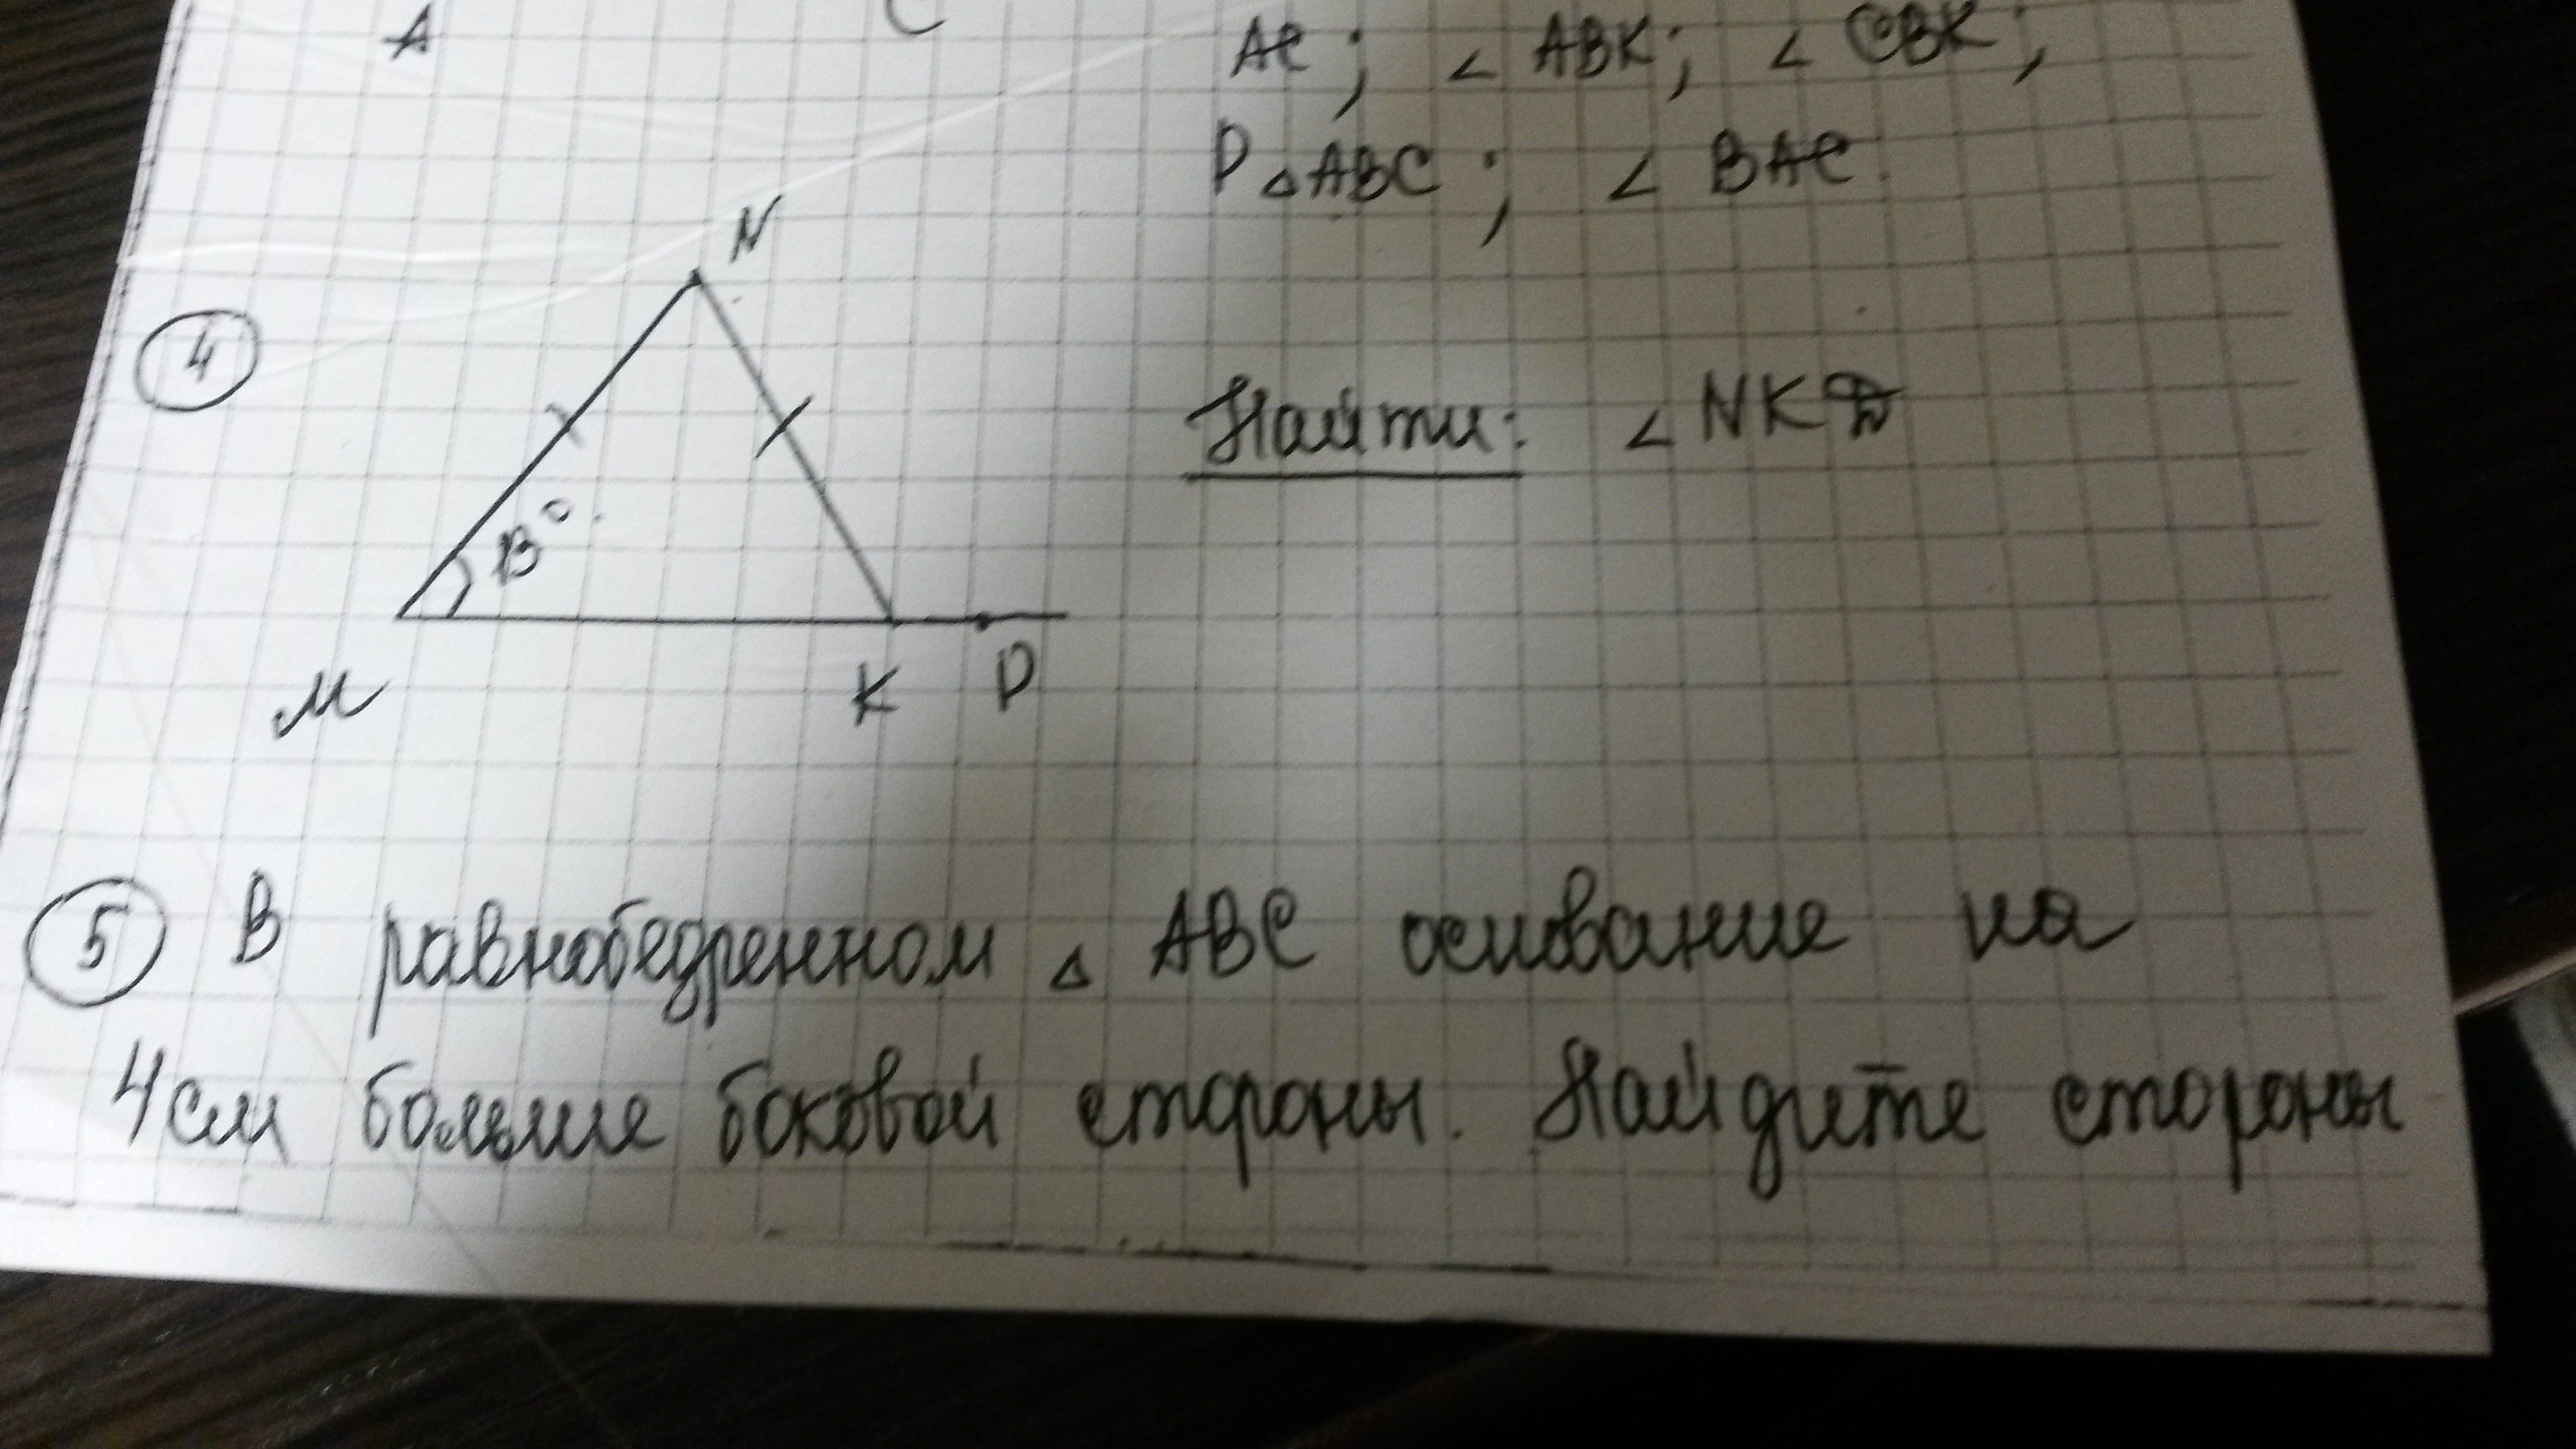 A C
AC; ∠ ABK; ∠ CBK;
P△ABC; ∠ BAC.
4
N
Найти: ∠ NKD
13°.
M K D
5 В равнобедренном △ ABC основание на
4см больше боковой стороны. Найдите стороны